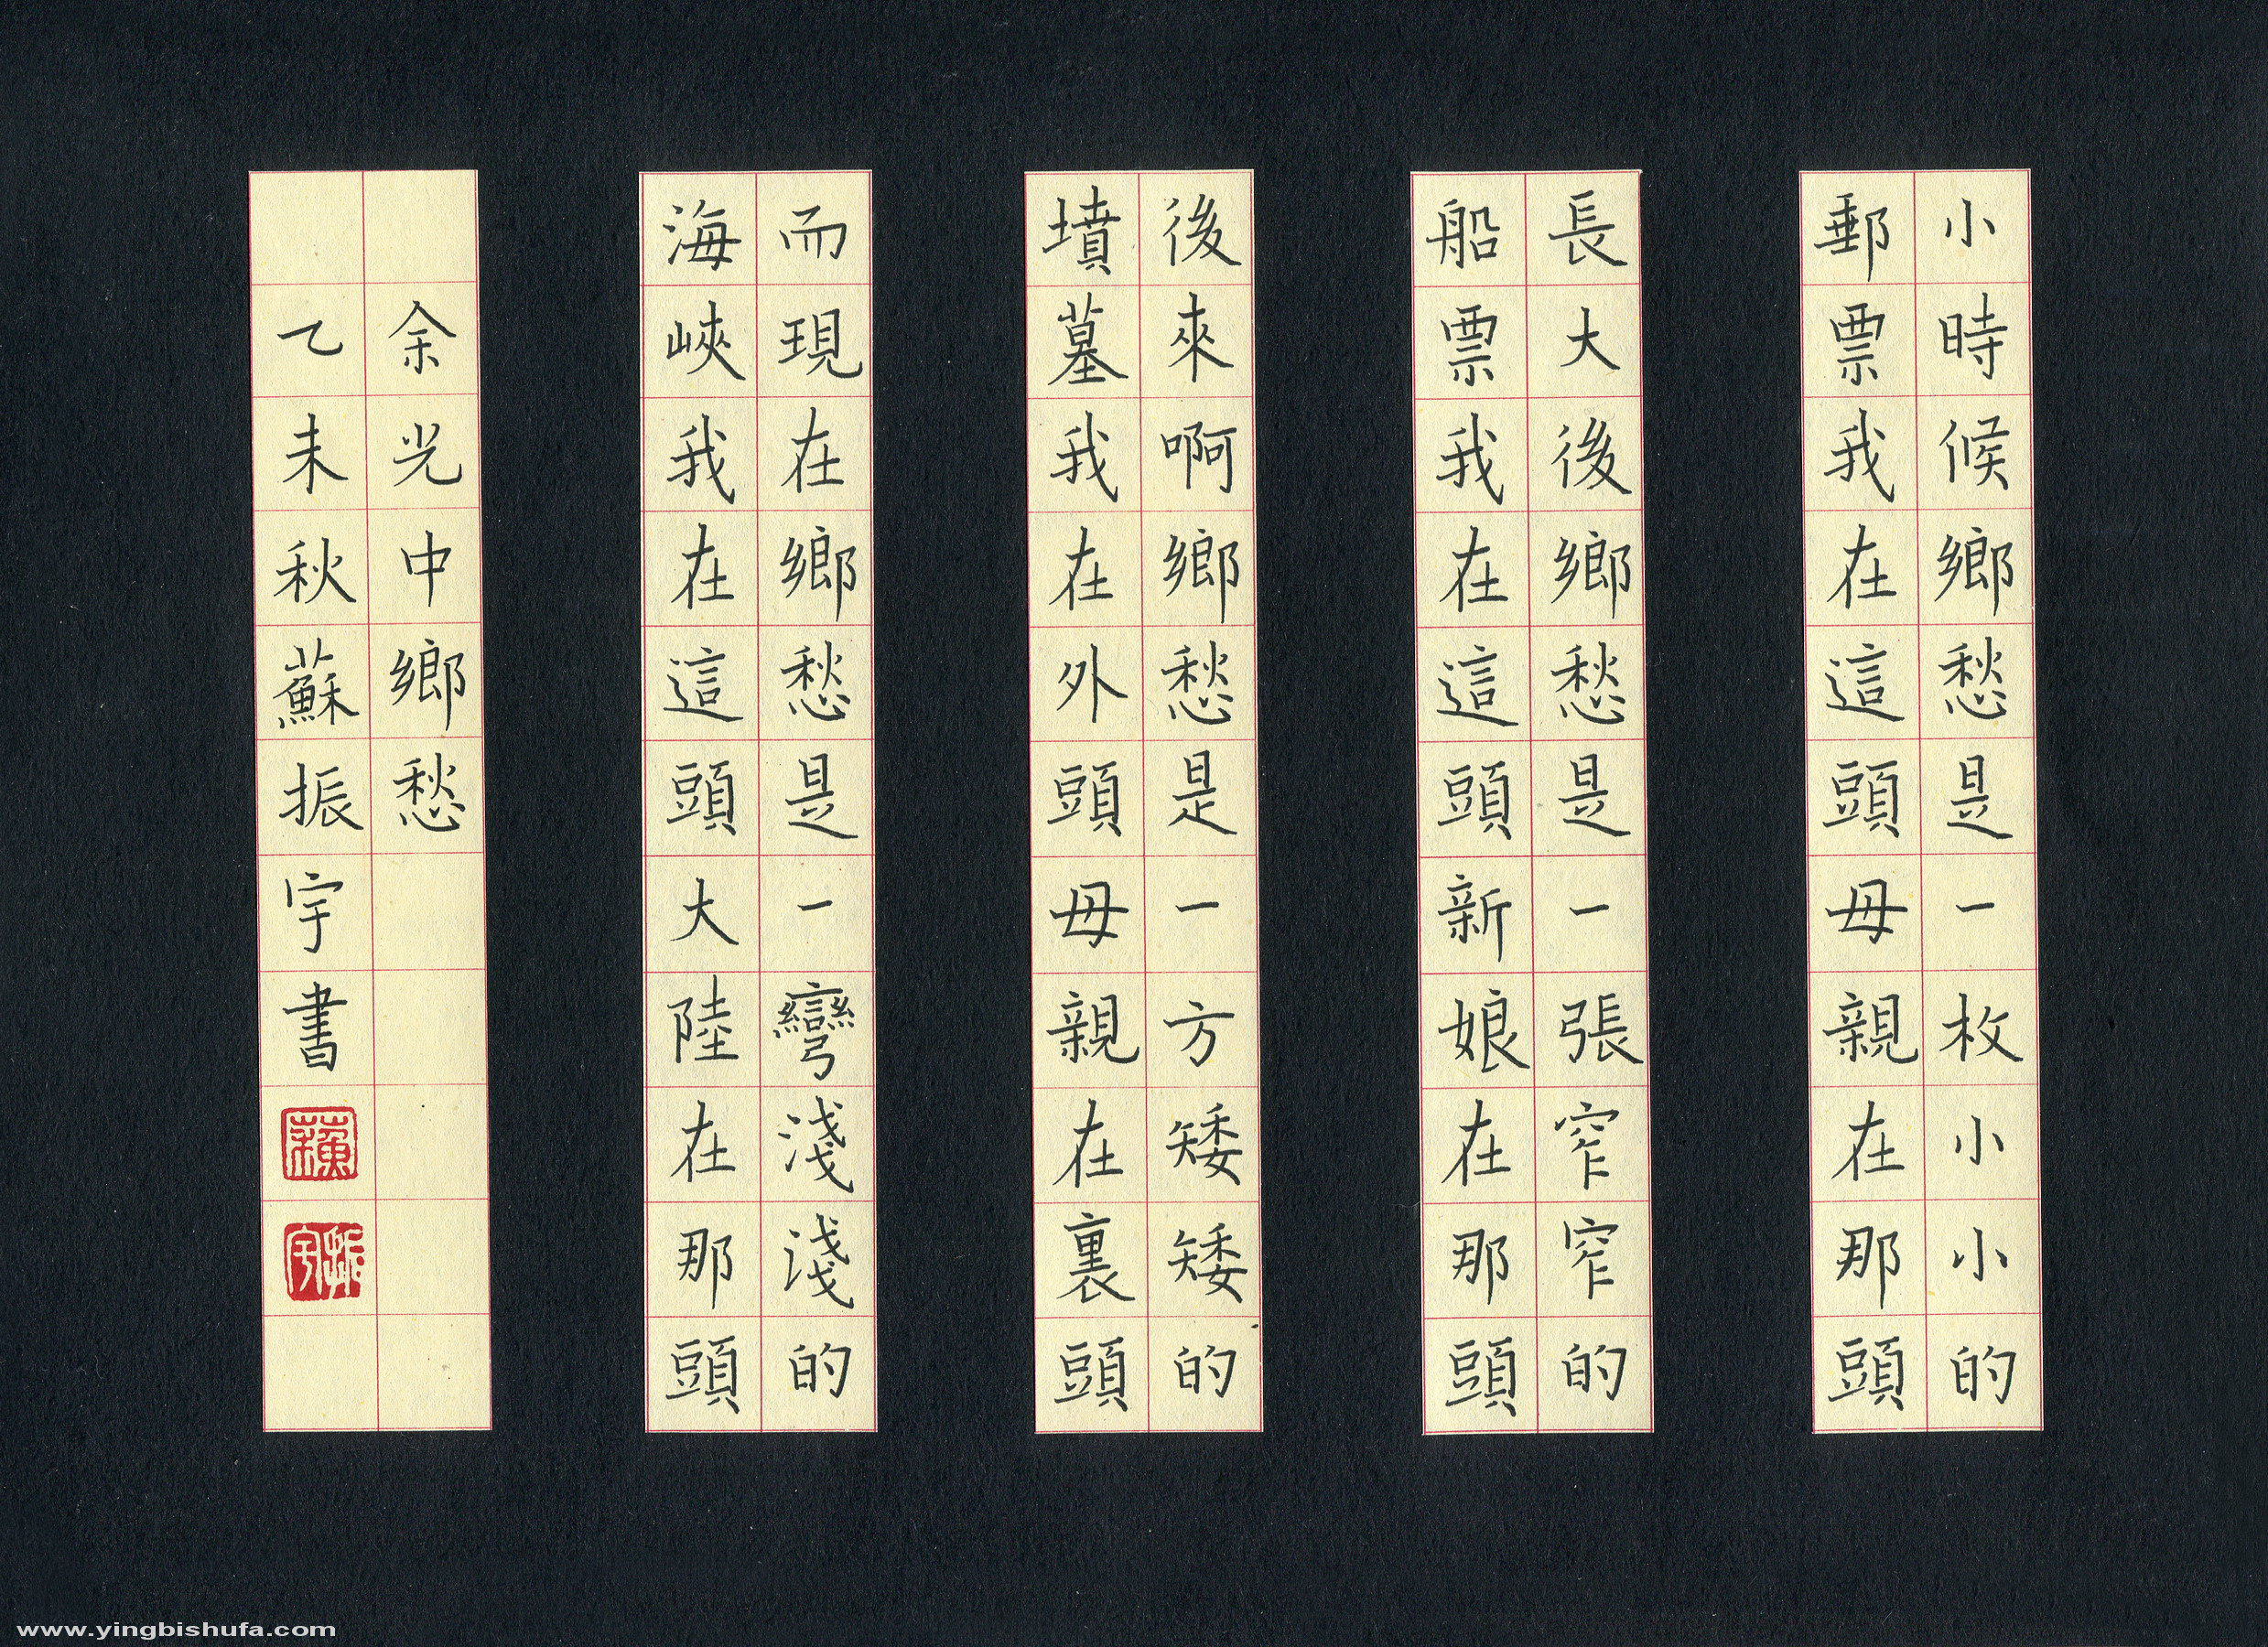 小時候鄉愁是一枚小小的
郵票我在這頭母親在那頭
長大後鄉愁是一張窄窄的
船票我在這頭新娘在那頭
後來啊鄉愁是一方矮矮的
墳墓我在外頭母親在裏頭
而現在鄉愁是一彎淺淺的
海峽我在這頭大陸在那頭
余光中鄉愁
乙未秋蘇振宇書
蘇
振宇
www.yingbishufa.com